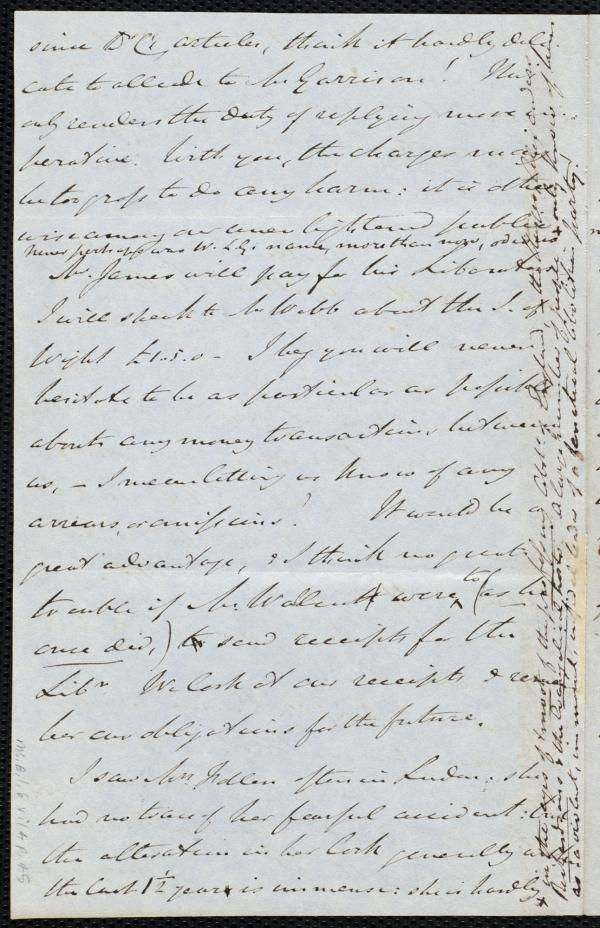 since Dr C's articles, think it hardly deli
cate to allude to Mr Garrison! This
only renders the duty of replying more im
perative. With you, the charges may
be too gross to do any harm: it is other
wise among our unenlightened public
Never perhaps was W. L. G's name, more than now, odious
Mr. James will pay for his Liberator
I will speak to Mr Webb about the I. of
Wight £1.5.0 - I beg you will never
hesitate to be as particular as possible
about any money transactions between
us, - I mean letting us know of any
arrears, or omissions! It would be a
great advantage, & I think no great
trouble if Mr Wallcutt were to (as he
once did,) send receipts for the
Libr. We look at our receipts & remem
ber our obligations for the future.
I saw Mrs. Follen often in London: she
had no trace of her fearful accident: but
the alteration in her look generally in
the last 1½ years is immense: she is hardly
+ in the eyes of many of the professing Abolts of England
as a violent, immoral, infidel leader of a fanatical Abolition party.
Ms.B.1.6 v.14 p.45